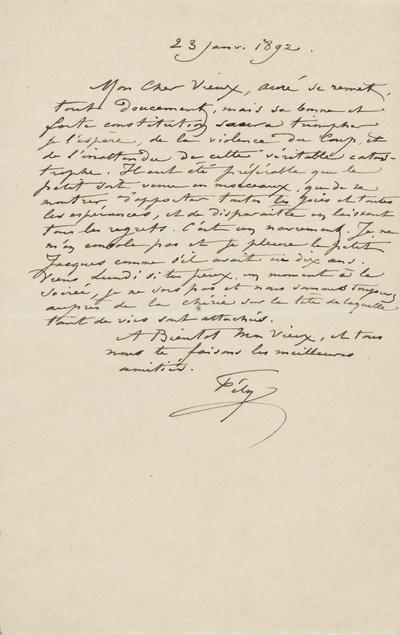 23 janv. 1892.
Mon Cher Vieux, se remet
tout doucement, mais sa bonne et
forte constitution saura triompher
je l'espère, de la violence du coup, et
de l'inattendu de cette véritable catas-
trophe. Il eut été préférable que le
petit soit venu en morceaux, que de se
montrer d'apporter toutes les joies et toutes
les espérances, et de disparaître en laissant
tous les regrets. C'est un navrement. Je ne
m'en console pas et je pleure le petit
Jacques comme s'il avait eu dix ans.
Viens Lundi si tu peux, un moment à la
soirée, je ne sors pas et nous sommes toujours
auprès de la chérie sur la tête de laquelle
tant de vies sont attachées.
A Bientot Mon Vieux, et tous
nous te faisons les meilleures
amitiés.
Fély